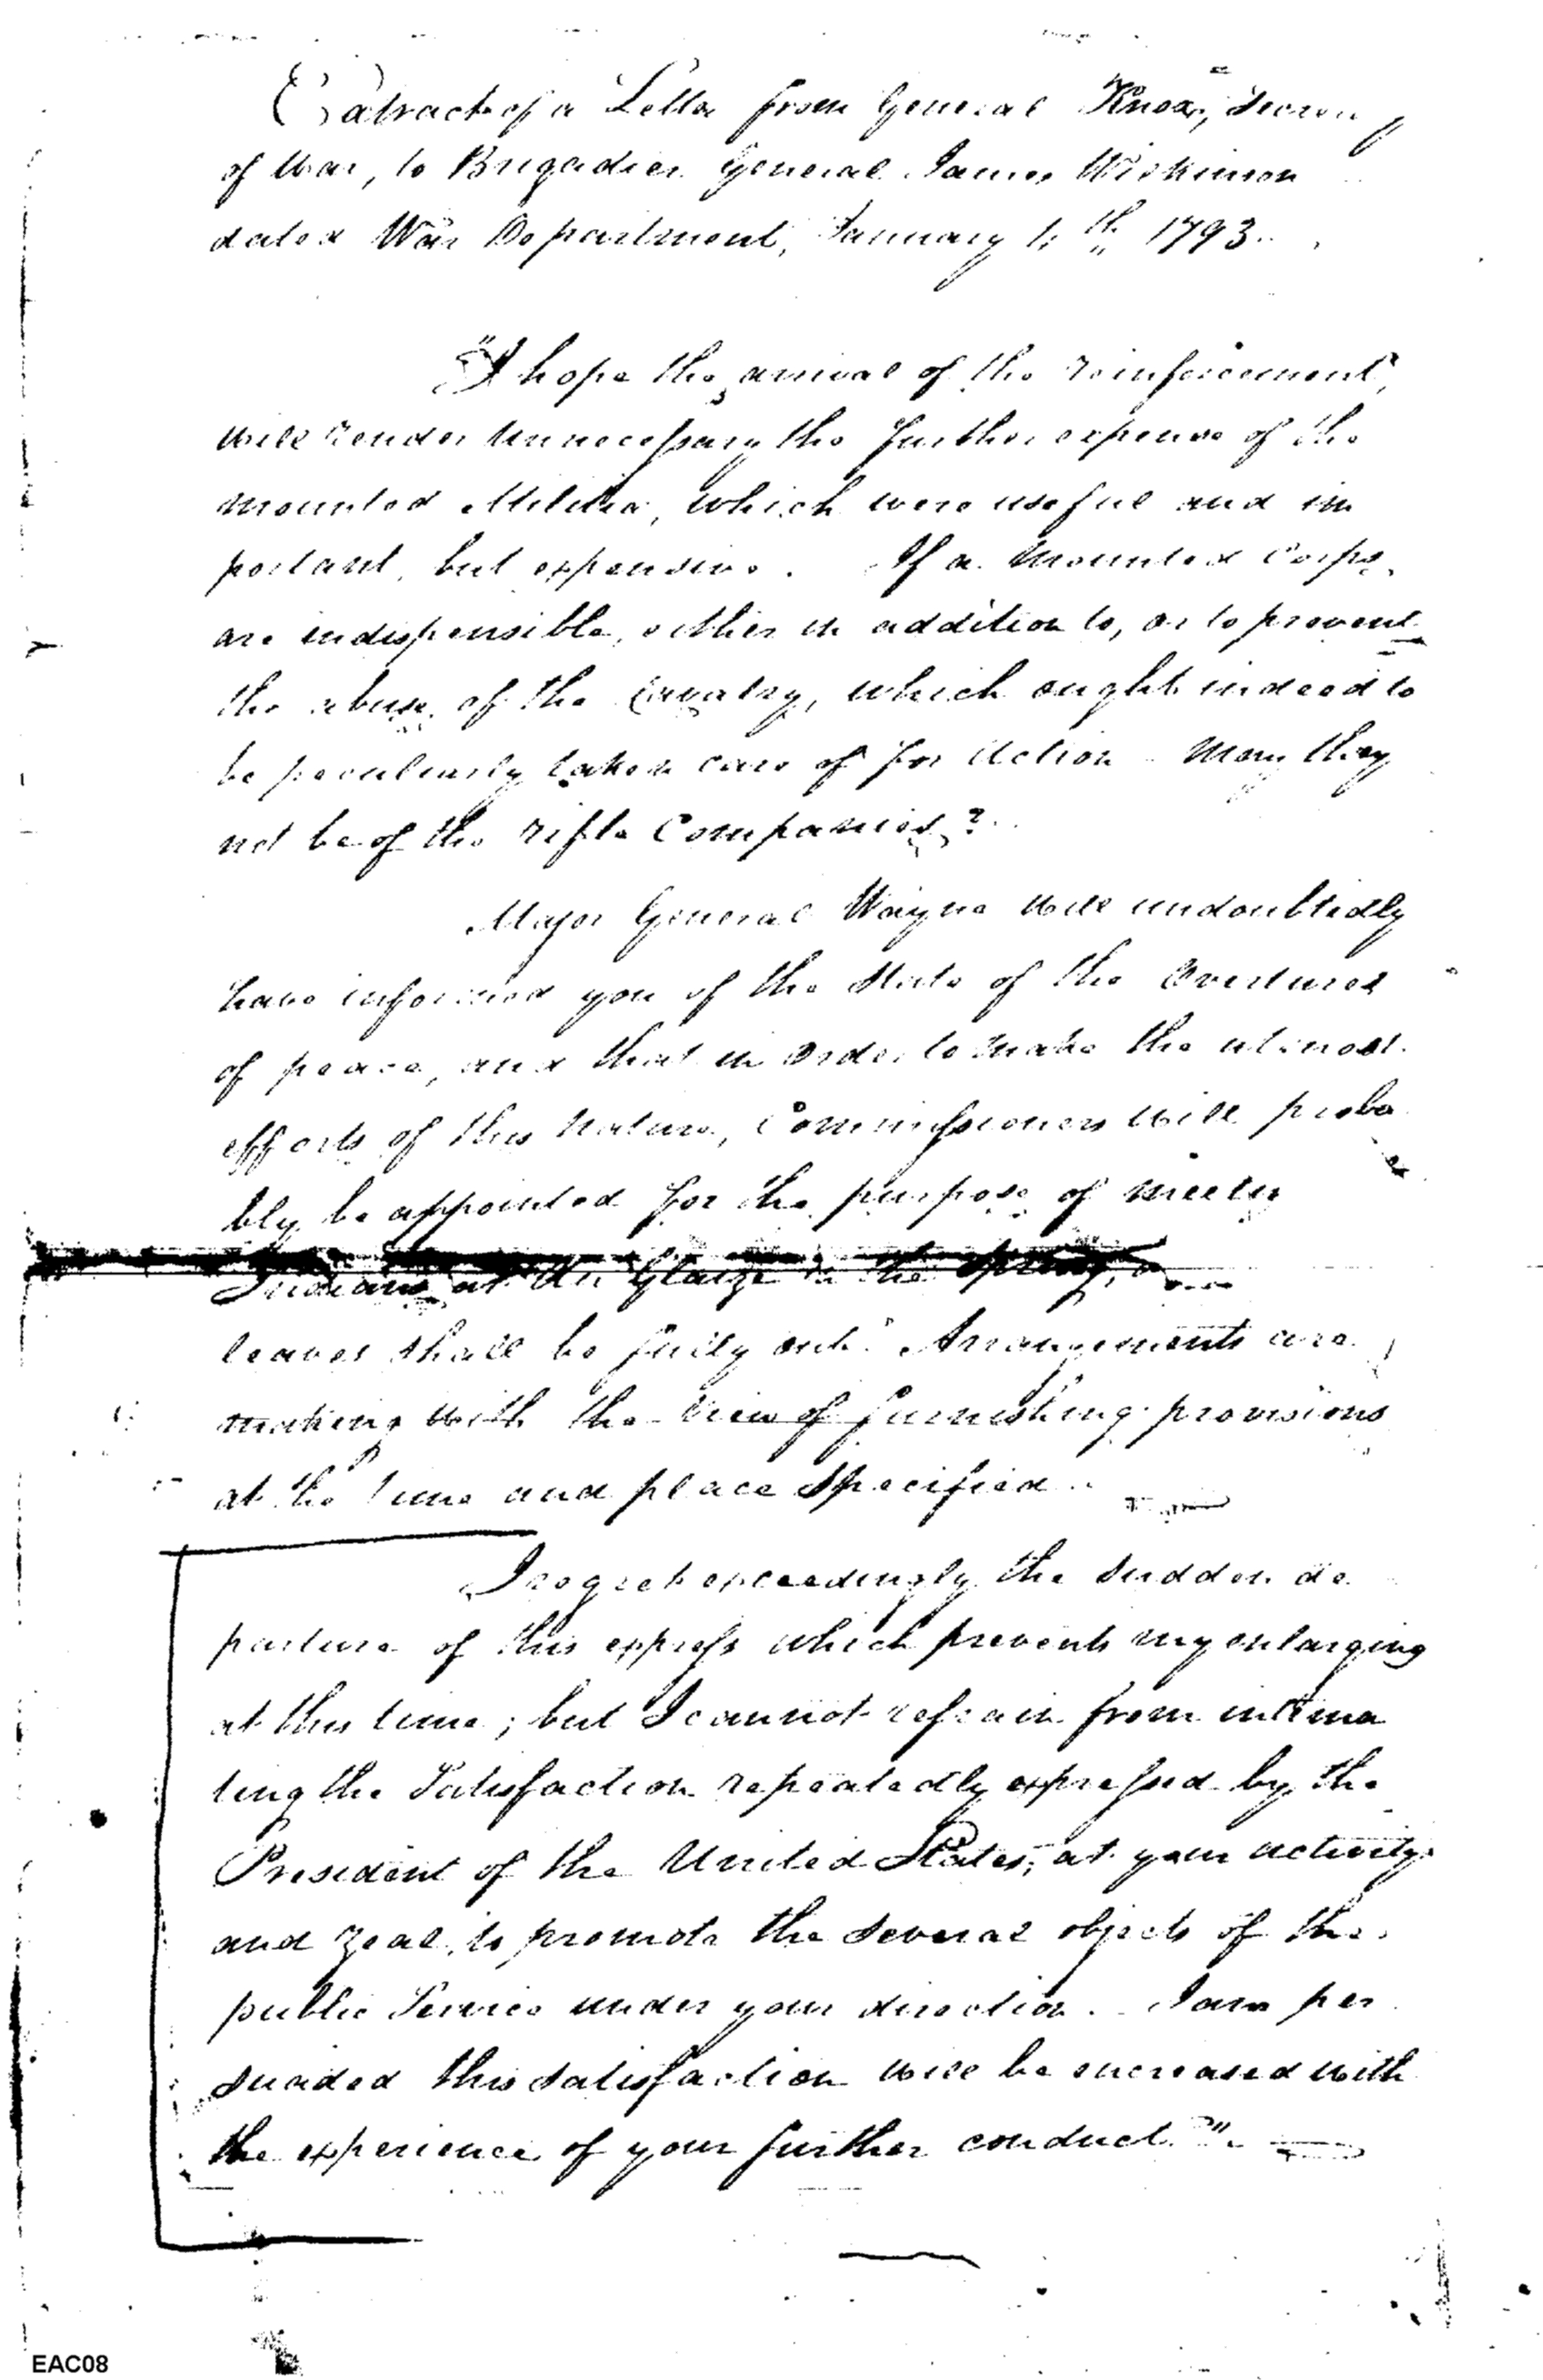 Extract of a Letter from General Knox, Secretary
of War, to Brigadier General James Wilkinson
dated War Department, January 1793.
"I hope the arrival of the reinforcement,
will render unnecessary the further expense of the
mounted Militia, which were useful and im
portant, but expensive. If a mounted Corps
are indispensible, either in addition to, or to prevent
the abuse of the Cavalry, which ought indeed to
be peculiarly taken care of for Action - May they
not be of the rifle Companies?
Major General Wayne will undoubtedly
have informed you of the State of the Overtures
of peace, and that in order to make the utmost
efforts of this nature, Commissioners will proba
bly be appointed for the purpose of meeting
Indians at Au Glaize in the Spring,
leaves shall be fully out. Arrangements are
making with the view of furnishing provisions
at the time and place Specified.
I regret exceedingly the sudden de
parture of this express which prevents my enlarging
at this time; but I cannot refrain from intima
ting the Satisfaction repeatedly expressed by the
President of the United States, at your activity
and zeal, to promote the several objects of the
public Service under your direction. I am per
suaded this satisfaction will be increased with
the experience of your further conduct."
EAC08